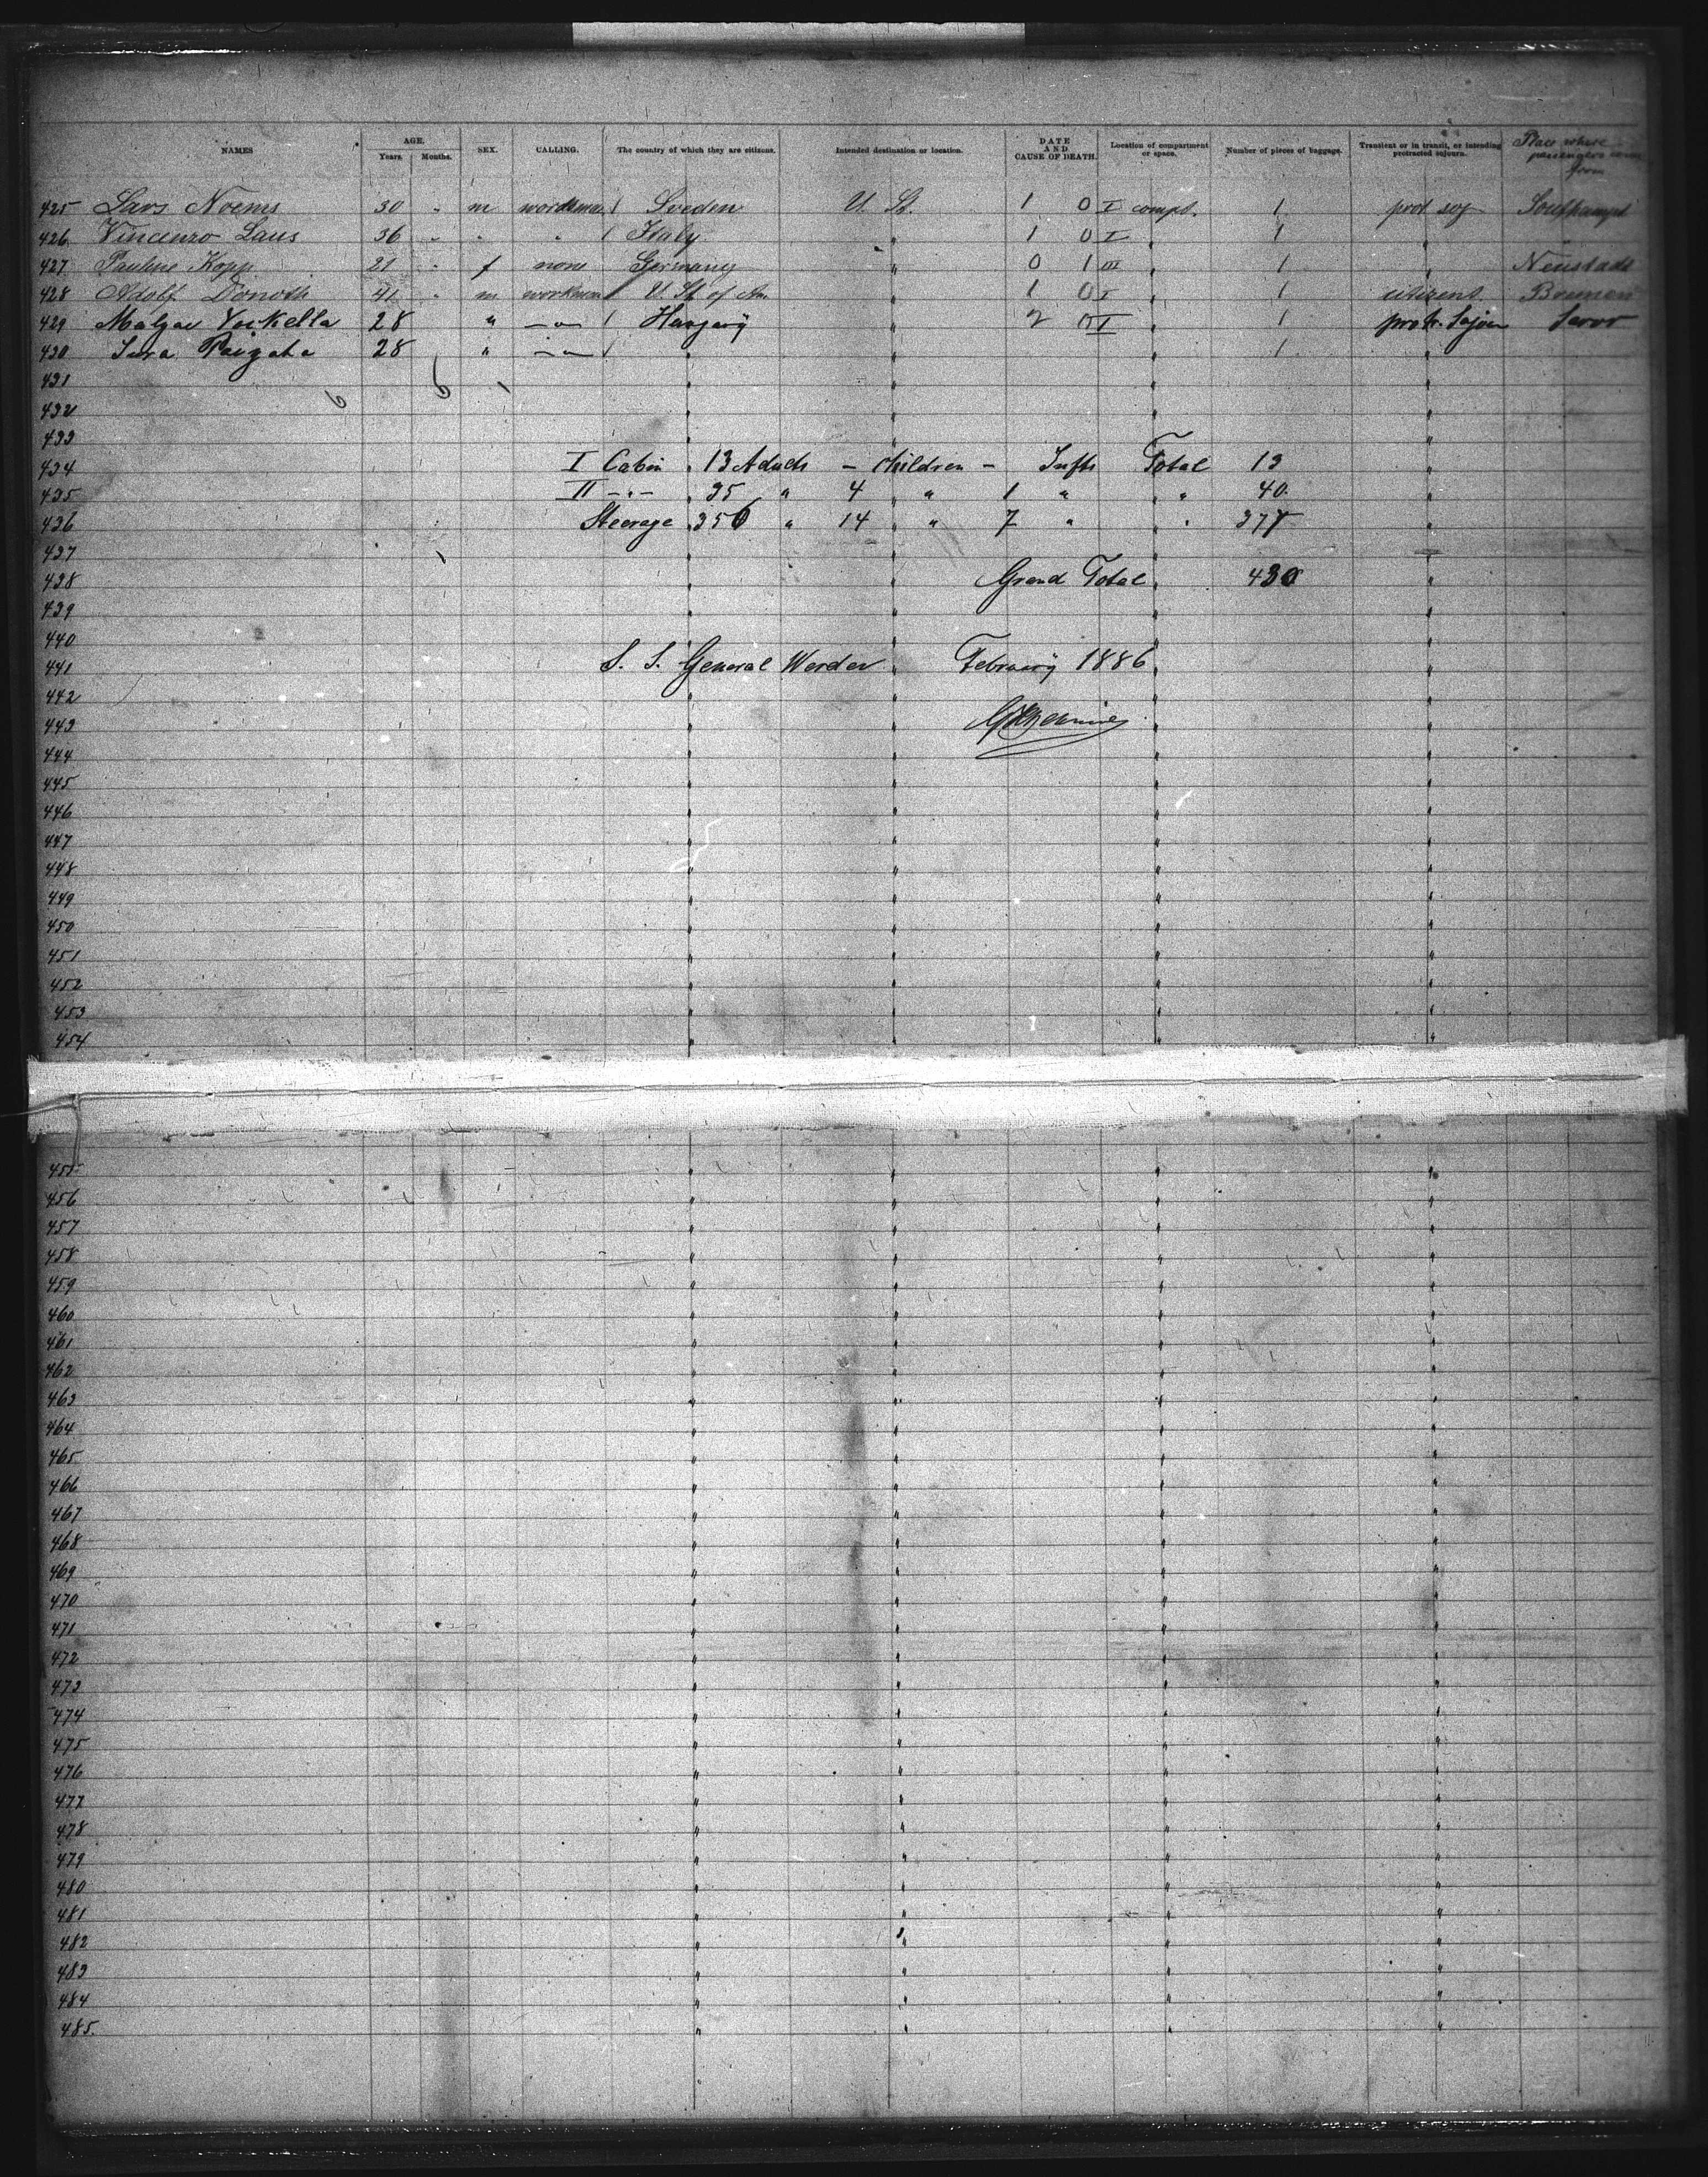 NAMES AGE. Years. Months. SEX. CALLING. The country of which they are citizens. Intended destination or location. DATE AND CAUSE OF DEATH. Location of compartment or space. Number of pieces of baggage. Transient or in transit, or intending protracted sojourn. Place where passengers come from
425 Lars Noems 30 " m workman / Sveden U. St. 1 0 I compt. 1 prot soj Southampt
426 Vincenzo Laus 36 " " " / Italy " 1 0 I " 1 "
427 Pauline Kopp 21 " f none Germany " 0 1 III " 1 " Neustadt
428 Adolf Donoth 41 " m workman / U St of Am. " 1 0 I " 1 citizent Bremen
429 Malgav 28 " -"- / Hungary " 2 0 I " 1 protr. Sojou Saros
430 Jura 28 " -"- / " " " 1 "
431
432
433
434 I Cabin 13 Adults - children - Infts Total 13
435 II -"- 35 " 4 " 1 " " 40.
436 Steerage 356 " 14 " 7 " " 377
437
438 Grand Total 430
439
440
441 S. S. General Werder February 1886
442
443
444
445
446
447
448
449
450
451
452
453
454
455
456
457
458
459
460
461
462
463
464
465
466
467
468
469
470
471
472
473
474
475
476
477
478
479
480
481
482
483
484
485.